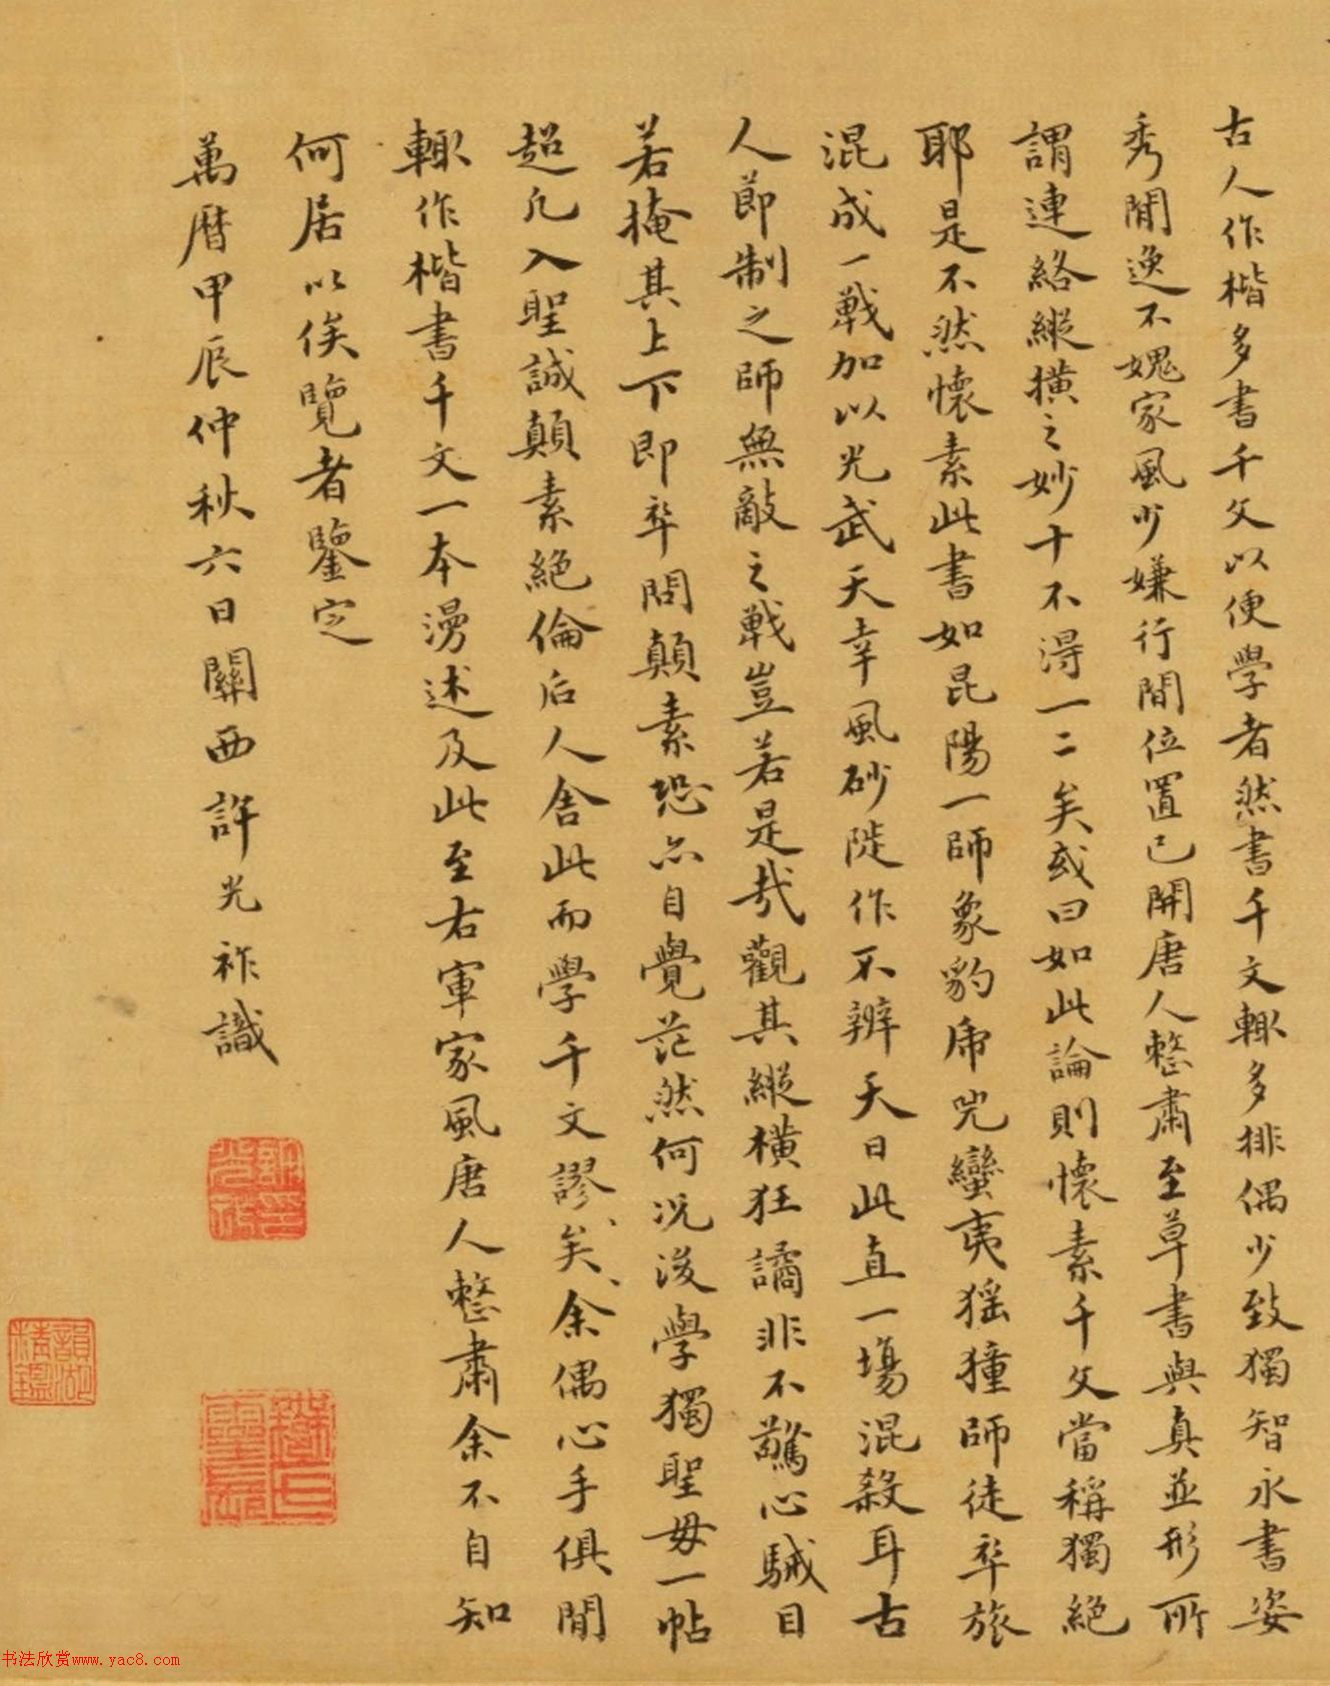 古人作楷多書千文以便學者然書千文輒多排偶少致獨智永書姿
秀閒逸不媿家風少嫌行間位置已開唐人整肅至草書與真並形所
謂連絡縱橫之妙十不得一二矣或曰如此論則懷素千文當稱獨絕
耶是不然懷素此書如昆陽一師象豹虎兕蠻夷猺獞師徒卒旅
混成一戰加以光武天幸風砂陡作不辨天日此直一場混殺耳古
人節制之師無敵之戰豈若是哉觀其縱橫狂譎非不驚心駴目
若掩其上下即卒問顛素恐亦自覺茫然何況後學獨聖母一帖
超凡入聖誠顛素絕倫后人舍此而學千文謬矣余偶心手俱閒
輒作楷書千文一本漫述及此至右軍家風唐人整肅余不自知
何居以俟覽者鑒定
萬曆甲辰仲秋六日關西許光祚識
韻湖精鑑
书法欣赏www.yac8.com